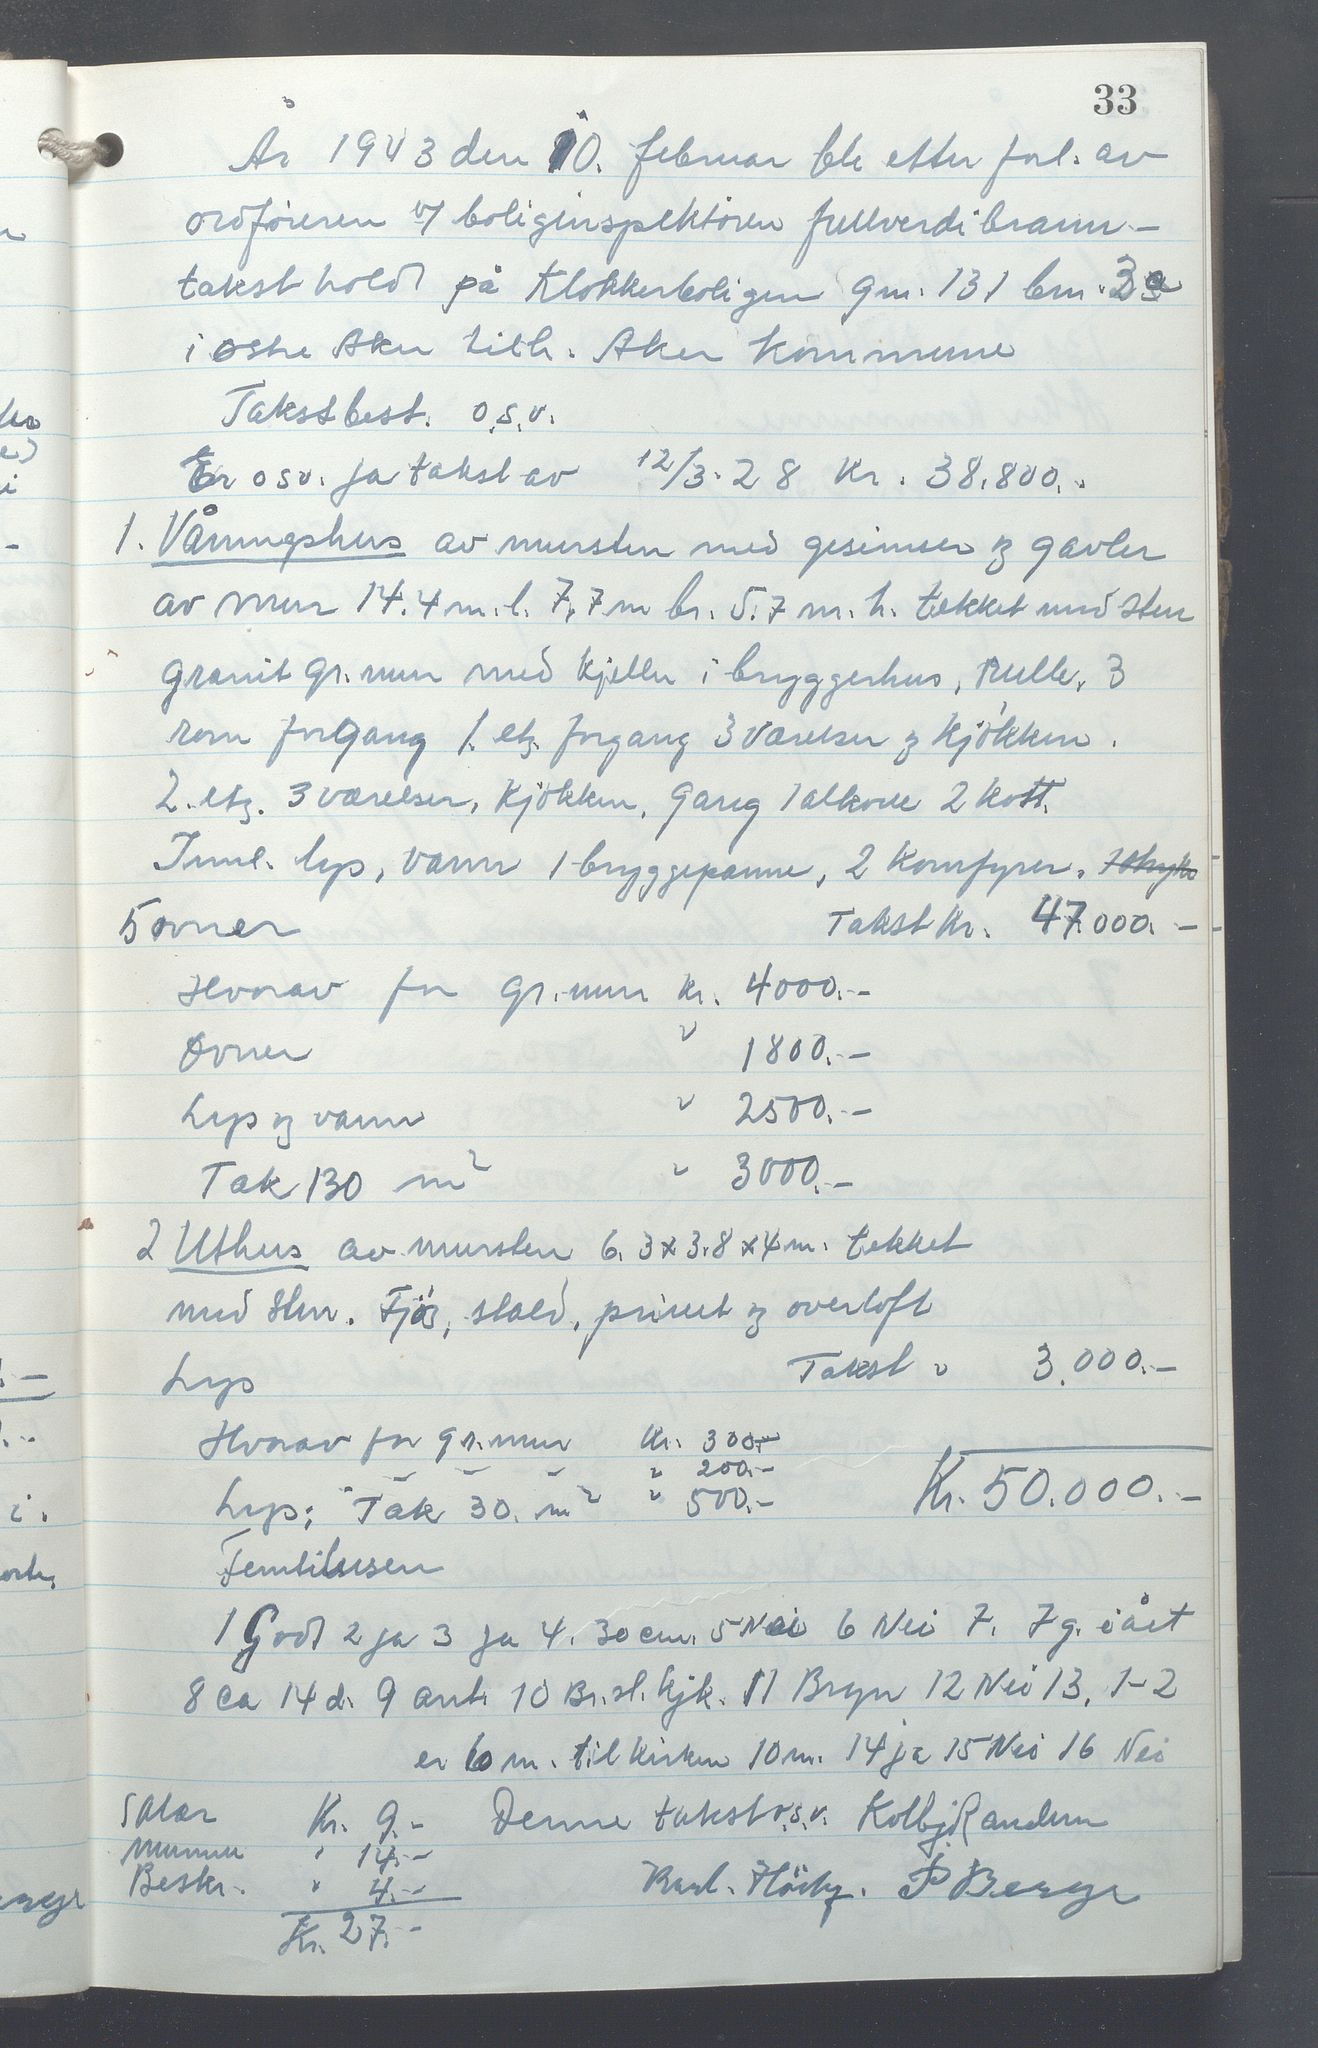 33
År 1943 den 10. februar ble etter forl. av
ordføreren v/ boliginspektøren fullverdibrann-
takst holdt på Klokkerboligen gn. 131 bn. 3a
i østre Aker tilh. Aker kommune
Takstbest. o.s.v.
Er osv. ja takst av 12/3-28 Kr. 38.800.-
1. Våningshus av mursten med gesimser og gavler
av mur 14.4 m. l. 7,7 m br. 5.7 m. h. tekket med sten
granit gr. mur med kjeller i bryggerhus, Rulle, 3
rom forgang 1. etg. forgang 3 værelser og kjøkken.
2. etg. 3 værelser, kjøkken, gang 1 alkove 2 kott.
Innl. lys, vann 1 bryggepanne, 2 komfyrer.
5 ovner Takst Kr. 47.000.-
Hvorav for gr. mur kr. 4000.-
Ovner " 1800.-
Lys og vann " 2500.-
Tak 130 m² " 3000.-
2 Uthus av mursten 6.3 x 3.8 x 4 m. tekket
med sten. Fjøs, stald, privet og overloft
Lys Takst " 3.000.-
Hvorav for gr. mur Kr. 300.-
" 200.-
Lys; Tak 30. m² " 500.- Kr. 50.000.-
Femtitusen
1 Godt 2 ja 3 ja 4. 30 cm. 5 Nei 6 Nei 7. 7 g. i året
8 ca 14 d. 9 ant. 10 Br. sl. kjk. 11 Bryn 12 Nei 13, 1-2
er 6 m. til kirken 10 m. 14 ja 15 Nei 16 Nei
Salær Kr. 9.- Denne takst o.s.v. Kolbj.
" 14.-
Beskr. " 4.- Karl. P Berger
Kr. 27.-